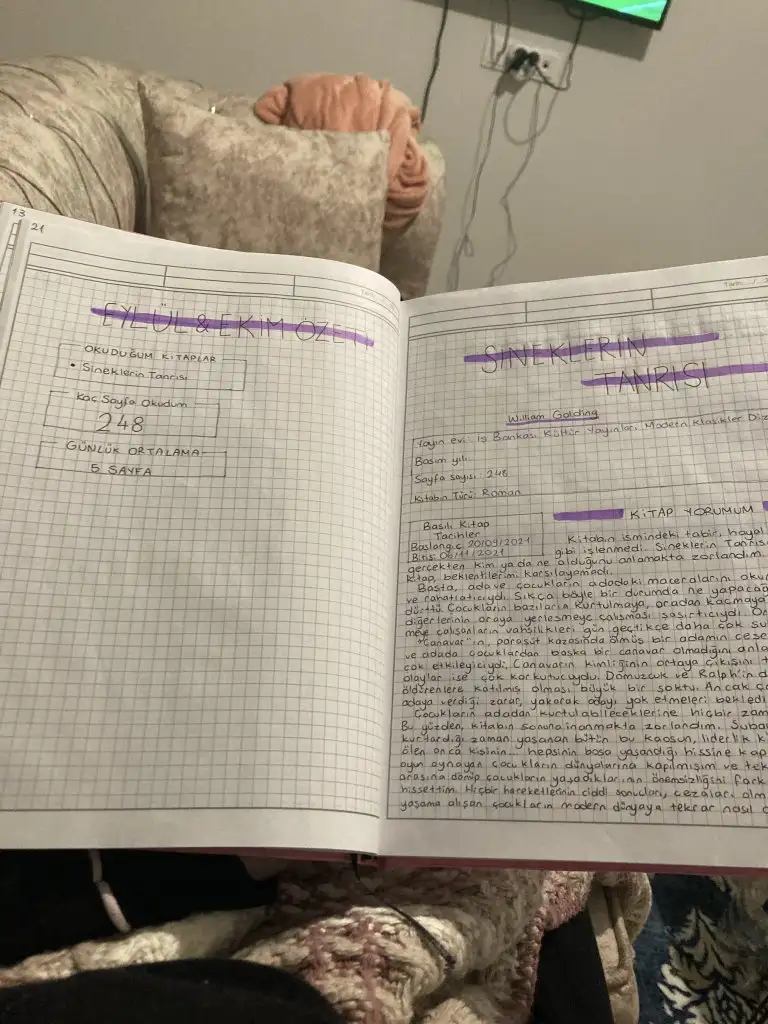 13
21
EYLÜL & EKİM ÖZETİ
OKUDUĞUM KİTAPLAR
• Sineklerin Tanrısı
Kaç Sayfa Okudum
248
GÜNLÜK ORTALAMA
5 SAYFA
SİNEKLERİN
TANRISI
William Golding
Yayın evi: İş Bankası Kültür Yayınları, Modern Klasikler Diz
Basım yılı:
Sayfa sayısı: 248
Kitabın Türü: Roman
KİTAP YORUMUM
Basılı Kitap
Tarihler
Başlangıç: 20/09/2021
Bitiş: 06/11/2021
Kitabın ismindeki tabir, hayal
gibi işlenmedi. Sineklerin Tanrısı
gerçekten kim ya da ne olduğunu anlamakta zorlandım.
Kitap, beklentilerimi karşılayamadı.
Başta, adave çocukların adadaki maceralarını oku
ve rahatlatıcıydı. Sıkça böyle bir durumda ne yapacağ
dürttü. Çocukların bazıların kurtulmaya, oradan kaçmaya
diğerlerinin oraya yerleşmeye çalışması şaşırtıcıydı.
meye çalışanların vahşilikleri gün geçtikçe daha çok su
"Canavar"ın, paraşüt kazasında ölmüş bir adamın cese
ve adada çocuklardan başka bir canavar olmadığını anla
çok etkileyiciydi. Canavarın kimliğinin ortaya çıkışını t
olaylar ise çok korkutucuydu. Domuzcuk ve Ralph'in d
öldürenlere katılmış olması büyük bir şoktu. Ancak ço
adaya verdiği zarar, yakarak adayı yok etmeleri bekledi
Çocukların adadan kurtulabileceklerine hiçbir zam
Bu yüzden, kitabın sonuna inanmakta zorlandım. Suba
kurtardığı zaman yaşanan bütün bu kaosun, liderlik k
ölen onca kişinin... hepsinin boşa yaşandığı hissine kap
oyun oynayan çocukların dünyalarına kapılmışım ve tek
arasına dönüp çocukların yaşadıklarının önemsizliğini fark
hissettim. Hiçbir hareketlerinin ciddi sonuçları, cezaları olm
yaşama alışan çocukların modern dünyaya tekrar nasıl